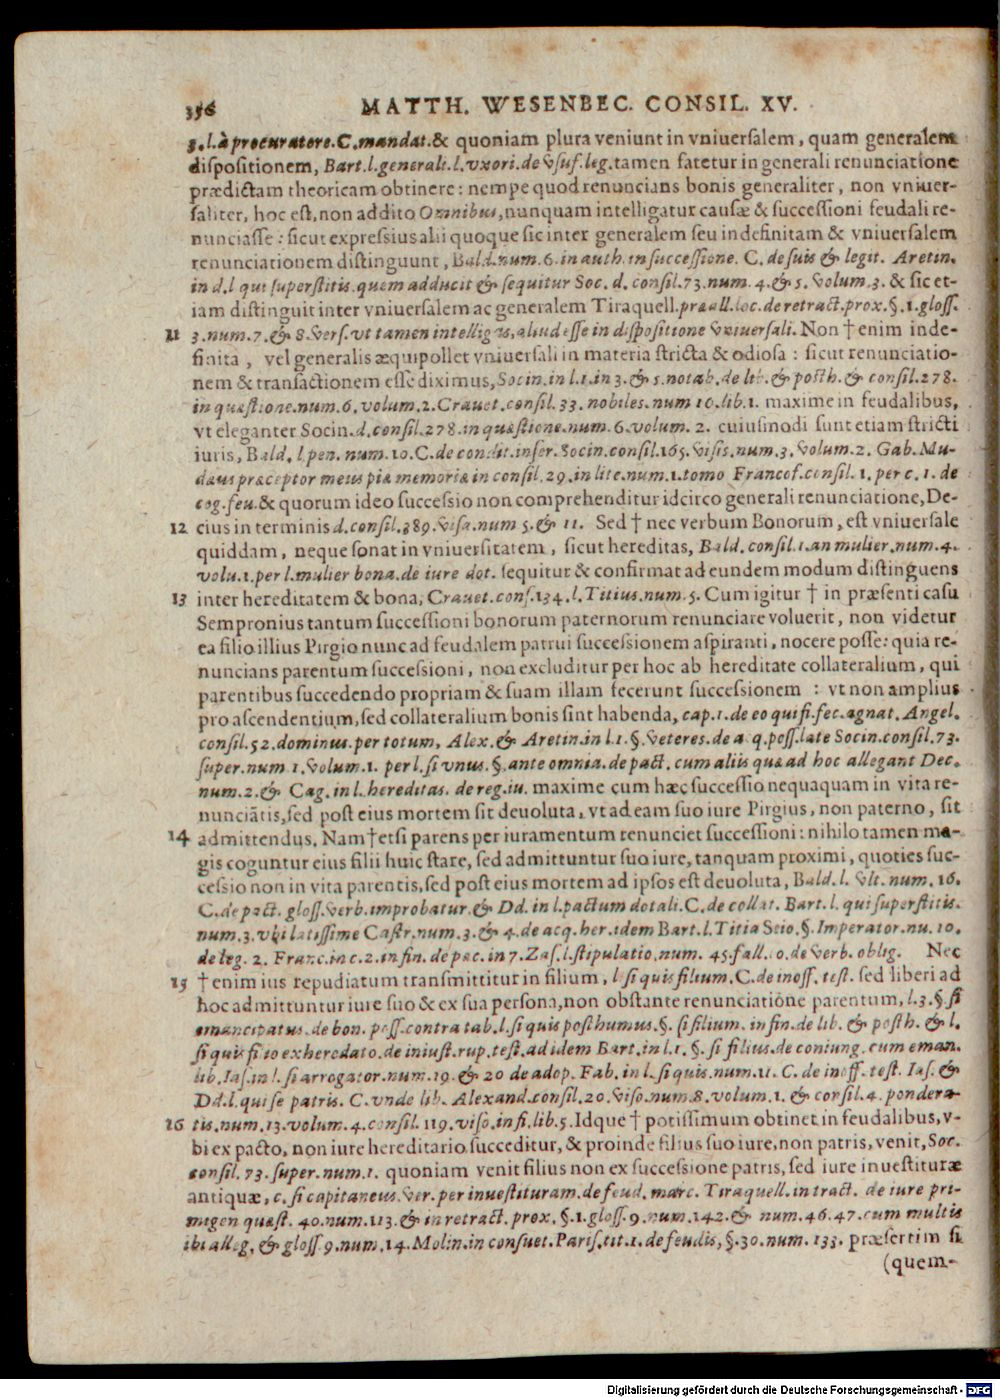 356 MATTH. WESENBEC. CONSIL. XV.
3. l. à procuratore. C. mandat. & quoniam plura veniunt in vniuersalem, quam generalem
dispositionem, Bart. l. generali. l. vxori. de vsuf. leg. tamen fatetur in generali renunciatione
prædictam theoricam obtinere: nempe quod renuncians bonis generaliter, non vniuer-
saliter, hoc est, non addito Omnibus, nunquam intelligatur causæ & successioni feudali re-
nunciasse: sicut expressius alii quoque sic inter generalem seu indefinitam & vniuersalem
renunciationem distinguunt, Bald. num. 6. in auth. in successione. C. de suis & legit. Aretin.
in d. l qui superstitis. quem adducit & sequitur Soc. d. consil. 73. num. 4. & 5. volum. 3. & sic et-
iam distinguit inter vniuersalem ac generalem Tiraquell. præall. loc. de retract. prox. §. 1. gloss.
11 3. num. 7. & 8. vers. vt tamen intelligas, aliud esse in dispositione vniuersali. Non † enim inde-
finita, vel generalis æquipollet vniuersali in materia stricta & odiosa: sicut renunciatio-
nem & transactionem esse diximus, Socin. in l. 1. in 3. & 5. notab. de lib. & posth. & consil. 278.
in quæstione. num. 6. volum. 2. Crauet. consil. 33. nobiles. num 10. lib. 1. maxime in feudalibus,
vt eleganter Socin. d. consil. 278. in quæstione. num. 6. volum. 2. cuiusmodi sunt etiam stricti
iuris, Bald. l pen. num. 10. C. de condit. inser. Socin. consil. 165. visis. num. 3. volum. 2. Gab. Mu-
dæus præceptor meus piæ memoriæ in consil. 29. in lite. num. 1. tomo Francof. consil. 1. per c. 1. de
cog. feu. & quorum ideo successio non comprehenditur idcirco generali renunciatione, De-
12 cius in terminis d. consil. 389. visa. num 5. & 11. Sed † nec verbum Bonorum, est vniuersale
quiddam, neque sonat in vniuersitatem, sicut hereditas, Bald. consil. 1. an mulier. num. 4.
volu. 1. per l. mulier bona. de iure dot. sequitur & confirmat ad eundem modum distinguens
13 inter hereditatem & bona, Crauet. cons. 134. l. Titius. num. 5. Cum igitur † in præsenti casu
Sempronius tantum successioni bonorum paternorum renunciare voluerit, non videtur
ea filio illius Pirgio nunc ad feudalem patrui successionem aspiranti, nocere posse: quia re-
nuncians parentum successioni, non excluditur per hoc ab hereditate collateralium, qui
parentibus succedendo propriam & suam illam fecerunt successionem: vt non amplius
pro ascendentium, sed collateralium bonis sint habenda, cap. 1. de eo qui si. fec. agnat. Angel.
consil. 52. dominus. per totum, Alex. & Aretin. in l. 1. §. veteres. de a q. poss. late Socin. consil. 73.
super. num 1. volum. 1. per l. si vnus. §. ante omnia. de pact. cum aliis quæ ad hoc allegant Dec.
num. 2. & Cag. in l. hereditas. de reg. iu. maxime cum hæc successio nequaquam in vita re-
nunciãtis, sed post eius mortem sit deuoluta, vt ad eam suo iure Pirgius, non paterno, sit
14 admittendus. Nam † etsi parens per iuramentum renunciet successioni: nihilo tamen ma-
gis coguntur eius filii huic stare, sed admittuntur suo iure, tanquam proximi, quoties suc-
cessio non in vita parentis, sed post eius mortem ad ipsos est deuoluta, Bald. l. vlt. num. 16.
C. de pact. gloss. verb. improbatur. & Dd. in l. pactum dotali. C. de collat. Bart. l. qui superstitis.
num. 3. vbi latissime Castr. num. 3. & 4. de acq. her. idem Bart. l. Titia Seio. §. Imperator. nu. 10.
de leg. 2. Franc. in c. 2. in fin. de pac. in 7. Zas. l. stipulatio. num. 45. fall. 0. de verb. oblig. Nec
15 † enim ius repudiatum transmittitur in filium, l si quis filium. C. de inoff. test. sed liberi ad
hoc admittuntur iure suo & ex sua persona, non obstante renunciatione parentum, l. 3. §. si
emancipatus. de bon. poss. contra tab. l. si quis posthumus. §. si filium. in fin. de lib. & posth. & l.
si quis filio exheredato. de iniust. rup. test. ad idem Bart. in l. 1. §. si filius. de coniung. cum eman.
lib. Ias. in l. si arrogator. num. 19. & 20 de adop. Fab. in l. si quis. num. 11. C. de inoff. test. Ias. &
Dd. l. qui se patris. C. vnde lib. Alexand. consil. 20. viso. num. 8. volum. 1. & consil. 4. pondera-
16 tis. num. 13. volum. 4. consil. 119. viso. in fi. lib. 5. Idque † potissimum obtinet in feudalibus, v-
bi ex pacto, non iure hereditario succeditur, & proinde filius suo iure, non patris, venit, Soc.
consil. 73. super. num. 1. quoniam venit filius non ex successione patris, sed iure inuestituræ
antiquæ, c. si capitaneus. ver. per inuestituram. de feud. marc. Tiraquell. in tract. de iure pri-
migen quæst. 40. num. 113. & in retract. prox. §. 1. gloss. 9. num. 142. & num. 46. 47. cum multis
ibi alleg. & gloss. 9. num. 14. Molin. in consuet. Paris. tit. 1. de feudis, §. 30. num. 133. præsertim si
(quem-
Digitalisierung gefördert durch die Deutsche Forschungsgemeinschaft - DFG